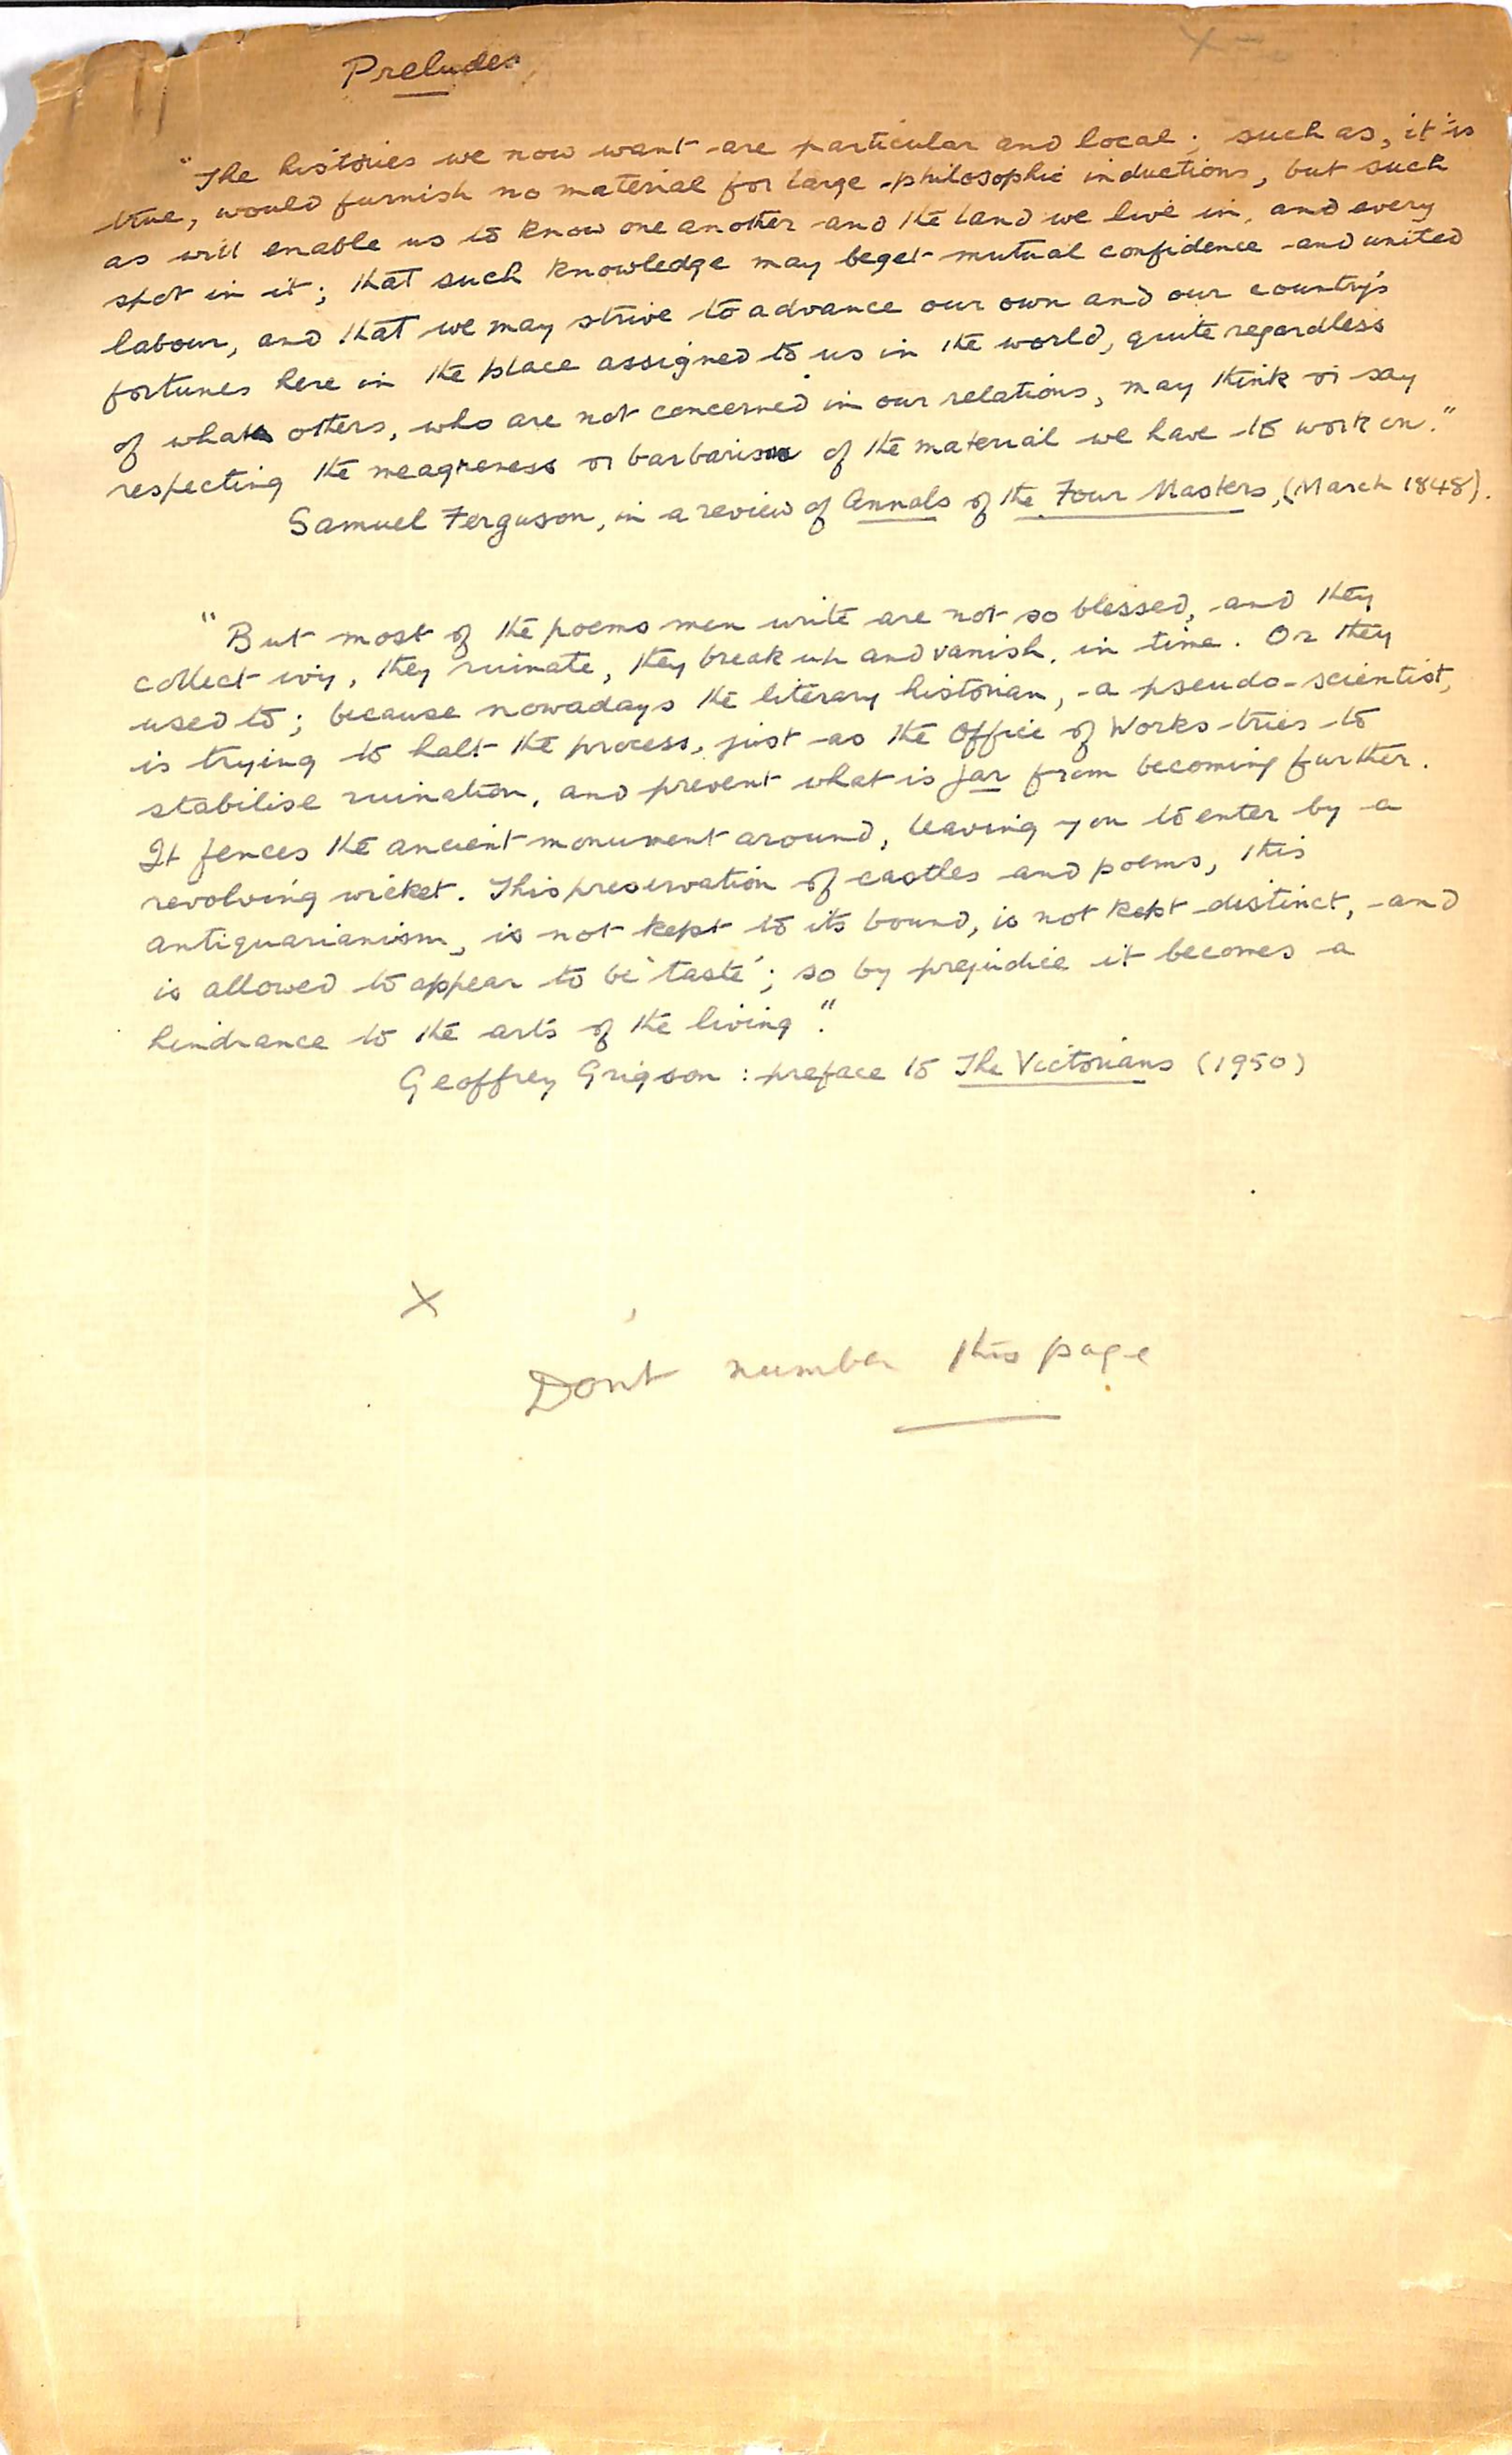 Preludes
"The histories we now want are particular and local; such as, it is
true, would furnish no material for large philosophic inductions, but such
as will enable us to know one another and the land we live in, and every
spot in it; that such knowledge may beget mutual confidence and united
labour, and that we may strive to advance our own and our country's
fortunes here in the place assigned to us in the world, quite regardless
of what others, who are not concerned in our relations, may think or say
respecting the meagreness or barbarism of the material we have to work on."
Samuel Ferguson, in a review of Annals of the Four Masters, (March 1848).
"But most of the poems men write are not so blessed, and they
collect ivy, they ruinate, they break up and vanish, in time. Or they
used to; because nowadays the literary historian, a pseudo-scientist,
is trying to halt the process, just as the Office of Works tries to
stabilise ruination, and prevent what is far from becoming further.
It fences the ancient monument around, leaving you to enter by a
revolving wicket. This preservation of castles and poems, this
antiquarianism, is not kept to its bound, is not kept distinct, and
is allowed to appear to be 'taste'; so by prejudice it becomes a
hindrance to the arts of the living."
Geoffrey Grigson : preface to The Victorians (1950)
X
Don't number this page